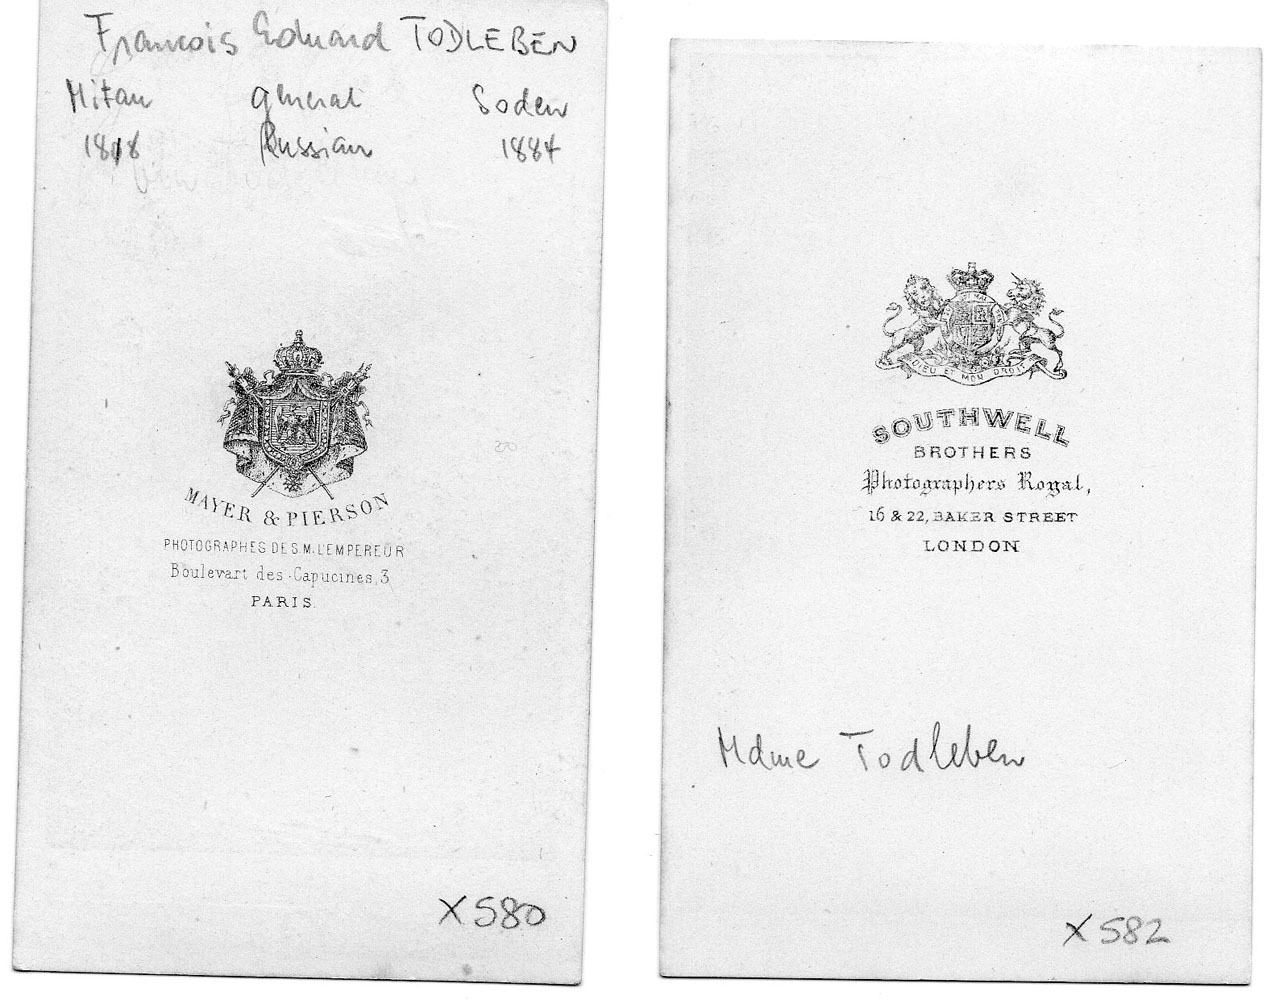 Francois Eduard TODLEBEN
Mitau general Soden
1818 Russian 1884
MAYER & PIERSON
PHOTOGRAPHES DE S.M. L'EMPEREUR
Boulevart des Capucines, 3
PARIS.
X580
DIEU ET MON DROIT
SOUTHWELL
BROTHERS
Photographers Royal,
16 & 22, BAKER STREET
LONDON
Mdme Todleben
X582